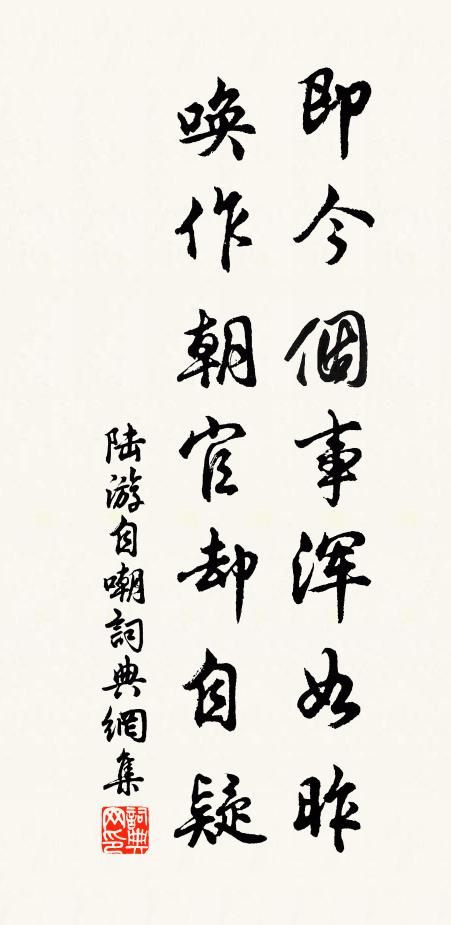 即今個事渾如昨
喚作朝官却自疑
陆游自嘲詞典網集
詞典网印